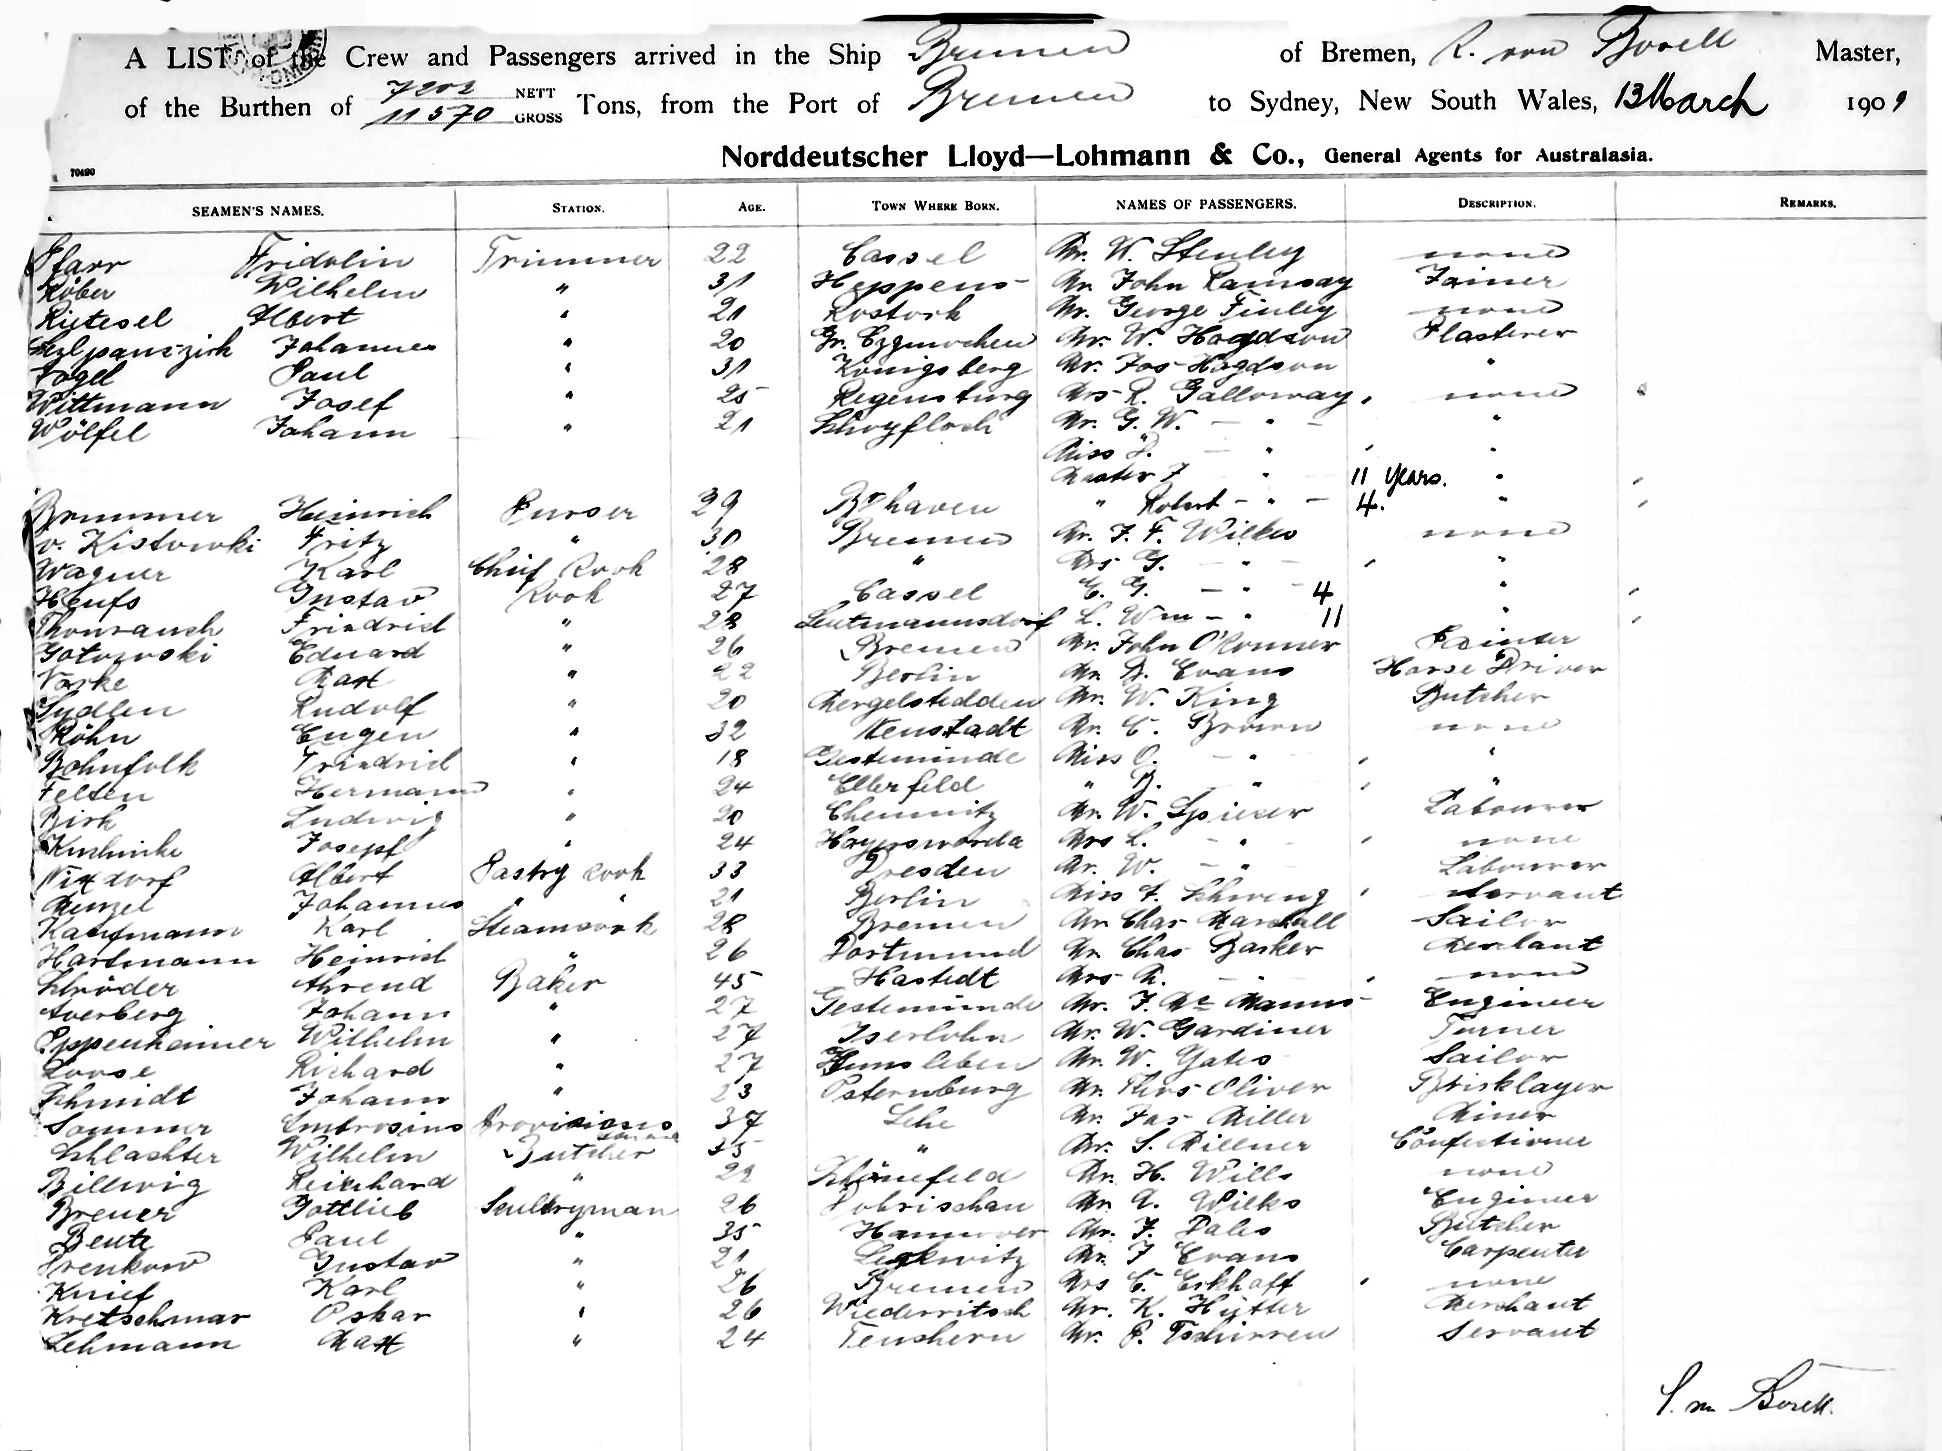 A LIST of the Crew and Passengers arrived in the Ship Bremen of Bremen, R. von Borell Master,
of the Burthen of 7202 NETT 11570 GROSS Tons, from the Port of Bremen to Sydney, New South Wales, 13 March 1909
Norddeutscher Lloyd—Lohmann & Co., General Agents for Australasia.
70490
SEAMEN'S NAMES. STATION. AGE. TOWN WHERE BORN. NAMES OF PASSENGERS. DESCRIPTION. REMARKS.
Pfarr Fridolin Trimmer 22 Cassel Mr. W. Stenley none
Röber Wilhelm " 31 Heppens Mr. John Ramsay Joiner
Rietesel Albert " 21 Rostock Mr. George Finley none
Johannes " 20 Gr. Mr. W. Hogdson Plasterer
Vogel Paul " 31 Königsberg Mr. Jos Hogdson "
Wittmann Josef " 25 Regensburg Mrs R. Galloway none
Wölfel Johann " 21 Mr. G. W. — " — "
Miss — "
Master J — " — 11 years. "
Brummer Heinrich Purser 29 Brhaven " Robert — " — 4. "
v. Kistowski Fritz " 30 Bremen Mr. J. F. Wilkes none
Wagner Karl Chief Cook 28 " Mrs G. — " — "
Heufs Gustav Cook 27 Cassel E. G. — " — 4 "
Friedrich " 28 Leutmannsdorf L. Wm — " 11 "
Eduard " 26 Bremen Mr. John O'Connor Painter
Noske Max " 22 Berlin Mr. D. Evans Horse Driver
Sydlen Rudolf " 20 Mergelstedden Mr. W. King Butcher
Köhn Eugen " 32 Neustadt Mr. C. Brown none
Bohnfolk Friedrich " 18 Geestemünde Miss O. — " "
Felten Hermann " 24 Elberfeld " B. — " "
Birk Ludwig " 20 Chemnitz Mr. W. Spicer Labourer
Josepf " 24 Hoyerswerda Mrs L. — " — none
Nixdorf Albert Pastry Cook 33 Dresden Mr. W. — " — Labourer
Menzel Johannes " " 21 Berlin Miss F. Schweng Servant
Kaufmann Karl Steamcook 28 Bremen Mr Chas Marshall Sailor
Hartmann Heinrich " 26 Dortmund Mr Chas Barker Merchant
Schröder Ahrend Baker 45 Hastedt Mrs R. — " none
Averberg Johann " 27 Geestemünde Mr. J. Mc Manus Engineer
Eppenheimer Wilhelm " 27 Iserlohn Mr. W. Gardiner Turner
Loose Richard " 27 Mr. W. Yates Sailor
Schmidt Johann " 23 Osternburg Mr. Thos Oliver Bricklayer
Sommer Ambrosius Provisions 37 Lehe Mr. Jas Miller Miner
Schlachter Wilhelm Butcher 35 " Mr. S. Millner Confectioner
Billwig Reinhard " 22 Schönefeld Mr. H. Wills none
Breuer Gottlieb Scullryman 26 Mr. A. Wilks Engineer
Bentz Paul " 35 Hannover Mr. J. Dales Butcher
Trenkow Gustav " 21 Mr. J Evans Carpenter
Knief Karl " 26 Bremen Mrs C. Eckhoff none
Kretschmar Oskar " 26 Wiederritsch Mr. K. Hütter Merchant
Lehmann Max " 24 Teuchern Mr. P. Tschirren Servant
Borell.